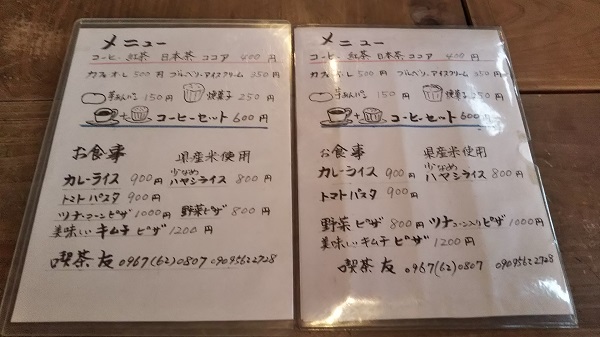 メニュー
コーヒー 紅茶 日本茶 ココア 400円
カフェオーレ 500円 ブルーベリーアイスクリーム 350円
芋あんパン 150円 焼菓子 250円
+ コーヒーセット 600円
お食事 県産米使用
カレーライス 900円 少なめ ハヤシライス 800円
トマトパスタ 900円
ツナコーンピザ 1000円 野菜ピザ 800円
美味しいキムチピザ 1200円
喫茶 友 0967(62)0807 09095622728
メニュー
コーヒー 紅茶 日本茶 ココア 400円
カフェオーレ 500円 ブルーベリーアイスクリーム 350円
芋あんパン 150円 焼菓子 250円
+ コーヒーセット 600円
お食事 県産米使用
カレーライス 900円 少なめ ハヤシライス 800円
トマトパスタ 900円
野菜ピザ 800円 ツナコーン入りピザ 1000円
美味しいキムチピザ 1200円
喫茶 友 0967(62)0807 09095622728